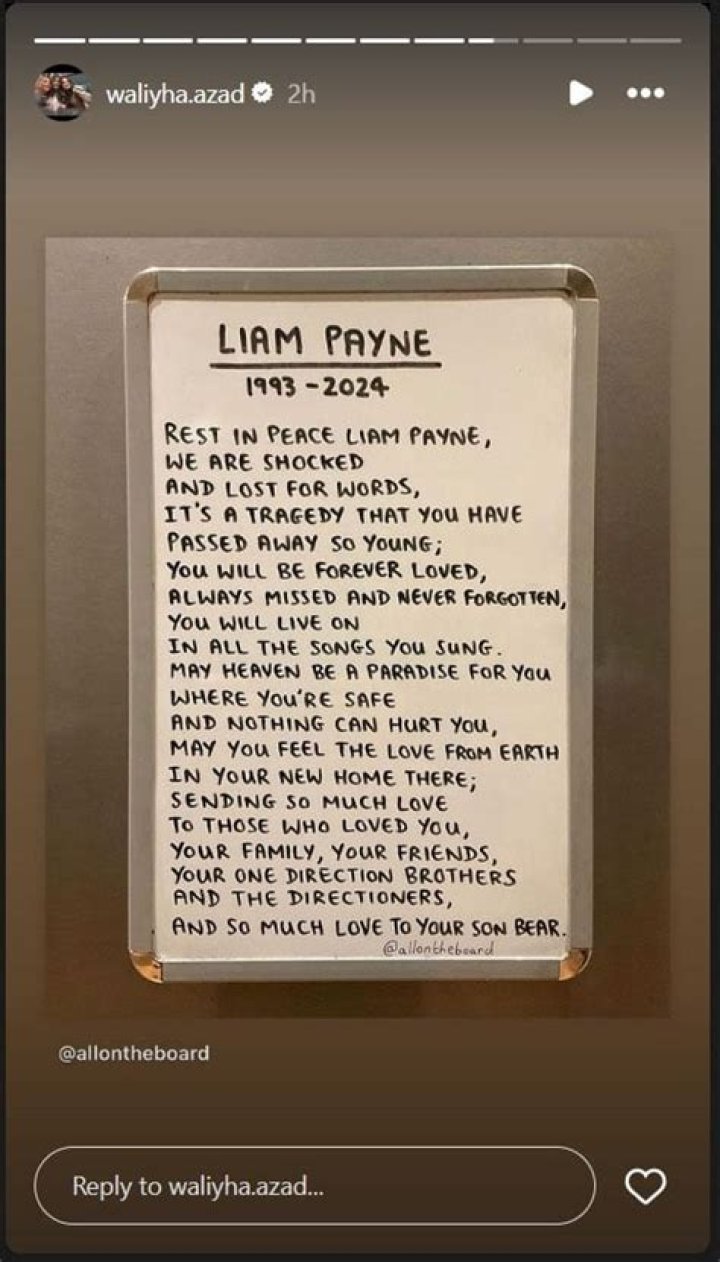 waliyha.azad 2h
LIAM PAYNE
1993 - 2024
REST IN PEACE LIAM PAYNE,
WE ARE SHOCKED
AND LOST FOR WORDS,
IT'S A TRAGEDY THAT YOU HAVE
PASSED AWAY SO YOUNG;
YOU WILL BE FOREVER LOVED,
ALWAYS MISSED AND NEVER FORGOTTEN,
YOU WILL LIVE ON
IN ALL THE SONGS YOU SUNG.
MAY HEAVEN BE A PARADISE FOR YOU
WHERE YOU'RE SAFE
AND NOTHING CAN HURT YOU,
MAY YOU FEEL THE LOVE FROM EARTH
IN YOUR NEW HOME THERE;
SENDING SO MUCH LOVE
TO THOSE WHO LOVED YOU,
YOUR FAMILY, YOUR FRIENDS,
YOUR ONE DIRECTION BROTHERS
AND THE DIRECTIONERS,
AND SO MUCH LOVE TO YOUR SON BEAR.
@allontheboard
@allontheboard
Reply to waliyha.azad...